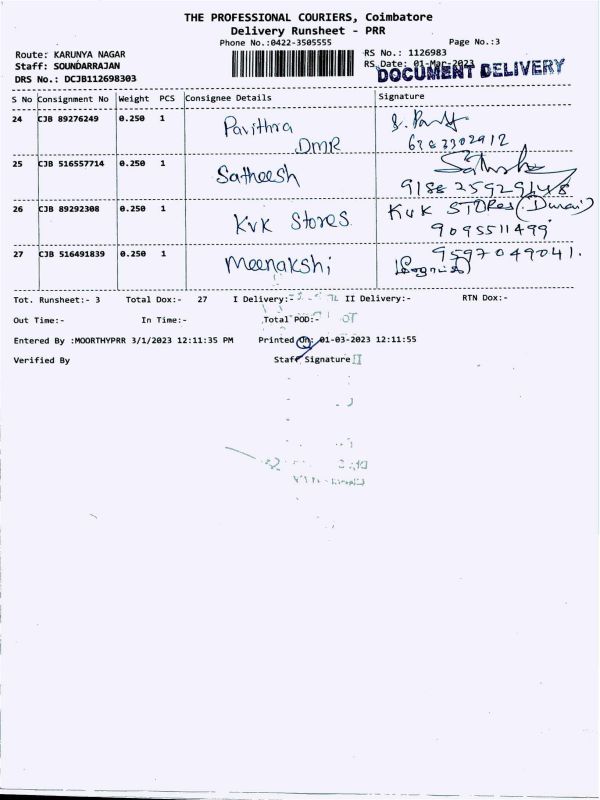 THE PROFESSIONAL COURIERS, Coimbatore
Delivery Runsheet - PRR
Phone No.:0422-3505555 Page No.:3
Route: KARUNYA NAGAR RS No.: 1126983
Staff: SOUNDARRAJAN RS Date: 01-Mar-2023
DOCUMENT DELIVERY
DRS No.: DCJB112698303
S No Consignment No Weight PCS Consignee Details Signature
24 CJB 89276249 0.250 1 Pavithra
DMR
25 CJB 516557714 0.250 1 Satheesh
26 CJB 89292308 0.250 1 KVK Stores KVK STORES (Durai)
9095511499
27 CJB 516491839 0.250 1 Meenakshi 9597049041.
Tot. Runsheet:- 3 Total Dox:- 27 I Delivery:- II Delivery:- RTN Dox:-
Out Time:- In Time:- Total POD:-
Entered By :MOORTHYPRR 3/1/2023 12:11:35 PM Printed On: 01-03-2023 12:11:55
Verified By Staff Signature